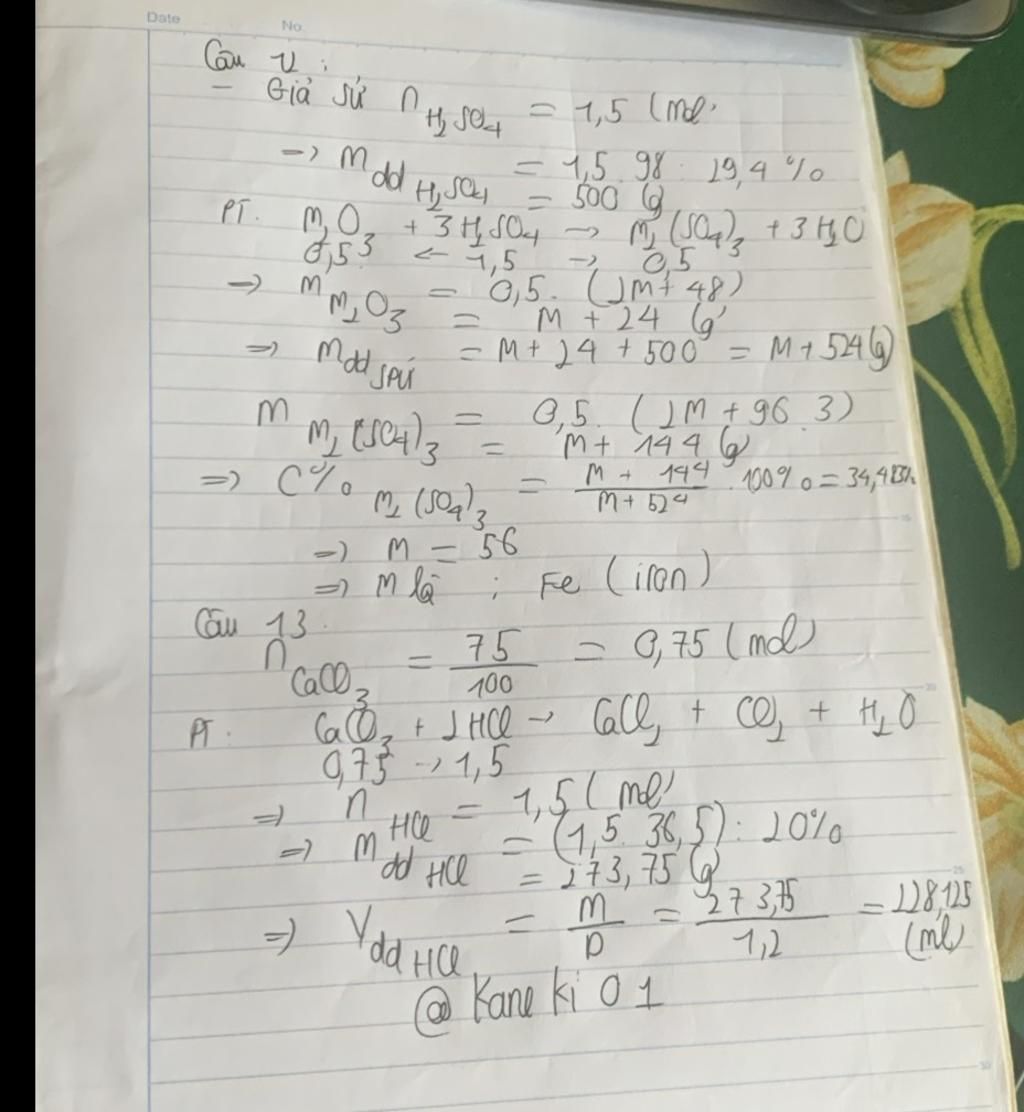 Date No.
Câu 12 :
- Giả sử n H₂SO₄ = 1,5 (mol)
→ m dd H₂SO₄ = 1,5 . 98 : 29,4 %
= 500 (g)
PT: M₂O₃ + 3H₂SO₄ → M₂(SO₄)₃ + 3H₂O
0,5 ← 1,5 → 0,5
⇒ m M₂O₃ = 0,5. (2M + 48)
= M + 24 (g)
⇒ m dd spứ = M + 24 + 500 = M + 524 (g)
m M₂(SO₄)₃ = 0,5. (2M + 96.3)
= M + 144 (g)
⇒ C% M₂(SO₄)₃ = M + 144 / M + 524 . 100% = 34,483%
⇒ M = 56
⇒ M là : Fe (iron)
Câu 13.
n CaCO₃ = 75 / 100 = 0,75 (mol)
PT: CaCO₃ + 2HCl → CaCl₂ + CO₂ + H₂O
0,75 → 1,5
⇒ n HCl = 1,5 (mol)
⇒ m dd HCl = (1,5 . 36,5) : 20%
= 273,75 (g)
⇒ V dd HCl = m / D = 273,75 / 1,2 = 228,125 (ml)
@ Kane ki 01